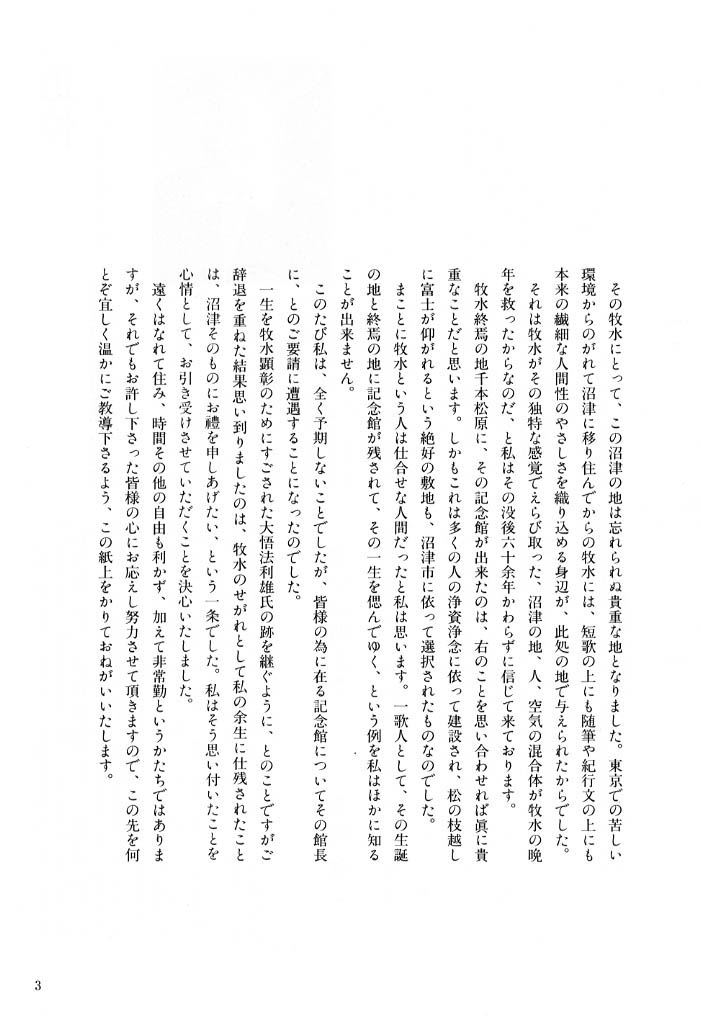 その牧水にとって、この沼津の地は忘れられぬ貴重な地となりました。東京での苦しい
環境からのがれて沼津に移り住んでからの牧水には、短歌の上にも随筆や紀行文の上にも
本来の繊細な人間性のやさしさを織り込める身辺が、此処の地で与えられたからでした。
それは牧水がその独特な感覚でえらび取った、沼津の地、人、空気の混合体が牧水の晩
年を救ったからなのだ、と私はその没後六十余年かわらずに信じて来ております。
牧水終焉の地千本松原に、その記念館が出来たのは、右のことを思い合わせれば眞に貴
重なことだと思います。しかもこれは多くの人の浄資浄念に依って建設され、松の枝越し
に富士が仰がれるという絶好の敷地も、沼津市に依って選択されたものなのでした。
まことに牧水という人は仕合せな人間だったと私は思います。一歌人として、その生誕
の地と終焉の地に記念館が残されて、その一生を偲んでゆく、という例を私はほかに知る
ことが出来ません。
このたび私は、全く予期しないことでしたが、皆様の為に在る記念館についてその館長
に、とのご要請に遭遇することになったのでした。
一生を牧水顕彰のためにすごされた大悟法利雄氏の跡を継ぐように、とのことですがご
辞退を重ねた結果思い到りましたのは、牧水のせがれとして私の余生に仕残されたこと
は、沼津そのものにお禮を申しあげたい、という一条でした。私はそう思い付いたことを
心情として、お引き受けさせていただくことを決心いたしました。
遠くはなれて住み、時間その他の自由も利かず、加えて非常勤というかたちではありま
すが、それでもお許し下さった皆様の心にお応えし努力させて頂きますので、この先を何
とぞ宜しく温かにご教導下さるよう、この紙上をかりておねがいいたします。
3